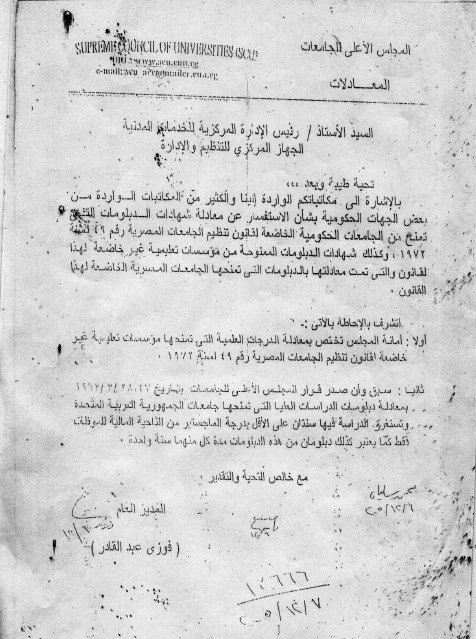 المجلس الأعلى للجامعات
المعــادلات
SUPREME COUNCIL OF UNIVERSITIES (SCU)
السيد الأستاذ / رئيس الإدارة المركزية للخدمات المدنية
الجهاز المركزي للتنظيم والإدارة
تحية طيبة وبعد ،،،
بالإشارة الى مكاتباتكم الواردة إلينا والكثير من المكاتبات الــواردة مــن
بعض الجهات الحكومية بشأن الاستفسار عن معادلة شهادات الــدبلومات التي
تمنح من الجامعات الحكومية الخاضعة لقانون تنظيم الجامعات المصرية رقم ٤٩ لسنة
١٩٧٢ ، وكذلك شهادات الدبلومات الممنوحة من مؤسسات تعليمية غير خاضعة لهذا
لقانون والتى تمت معادلتها بالدبلومات التى تمنحها الجامعات المصرية الخاضعة لهذا
القانون .
أتشرف بالإحاطة بالأتى :-
أولا : أمانة المجلس تختص بمعادلة الدرجات العلمية التى تمنحها مؤسسات تعليمية غير
خاضعة لقانون تنظيم الجامعات المصرية رقم ٤٩ لسنة ١٩٧٢ .
ثانيا : سبق وأن صدر قرار المجلس الأعلى للجامعات بتاريخ
بمعادلة دبلومات الدراسات العليا التى تمنحها جامعات الجمهورية العربية المتحدة
وتستغرق الدراسة فيها سنتان على الأقل بدرجة الماجستير من الناحية المالية للموظف
فقط كما يعتبر كذلك دبلومان من هذه الدبلومات مدة كل منهما سنة واحدة .
مع خالص التحية والتقدير
المدير العام
( فوزى عبد القادر )
١٢٦٦٦
٢٠٠٥/١٢/٧